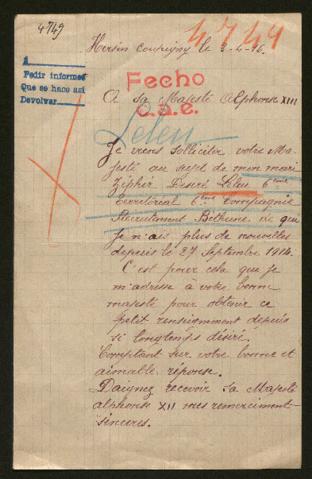 4749
4749
Hersin Coupigny le 3-4-16.
A
Pedir informes
Que se hace así
Devolver
Fecho
c.a.e.
A Sa Majesté Alphonse XIII
Leleu
Je viens solliciter votre Ma-
jesté au sujet de mon mari
Zéphir Désiré Leleu 6ème
Territorial 6ème Compagnie
Recrutement Béthune de qui
Je n'ais plus de nouvelles
depuis le 27 Septembre 1914.
C'est pour cela que je
m'adresse à votre bonne
majesté pour obtenir ce
petit renseignment depuis
si longtemps désiré.
Comptant sur votre bonne et
aimable réponse.
Daignez recevoir sa Majesté
alphonse XII mes remerciment-
sincères.